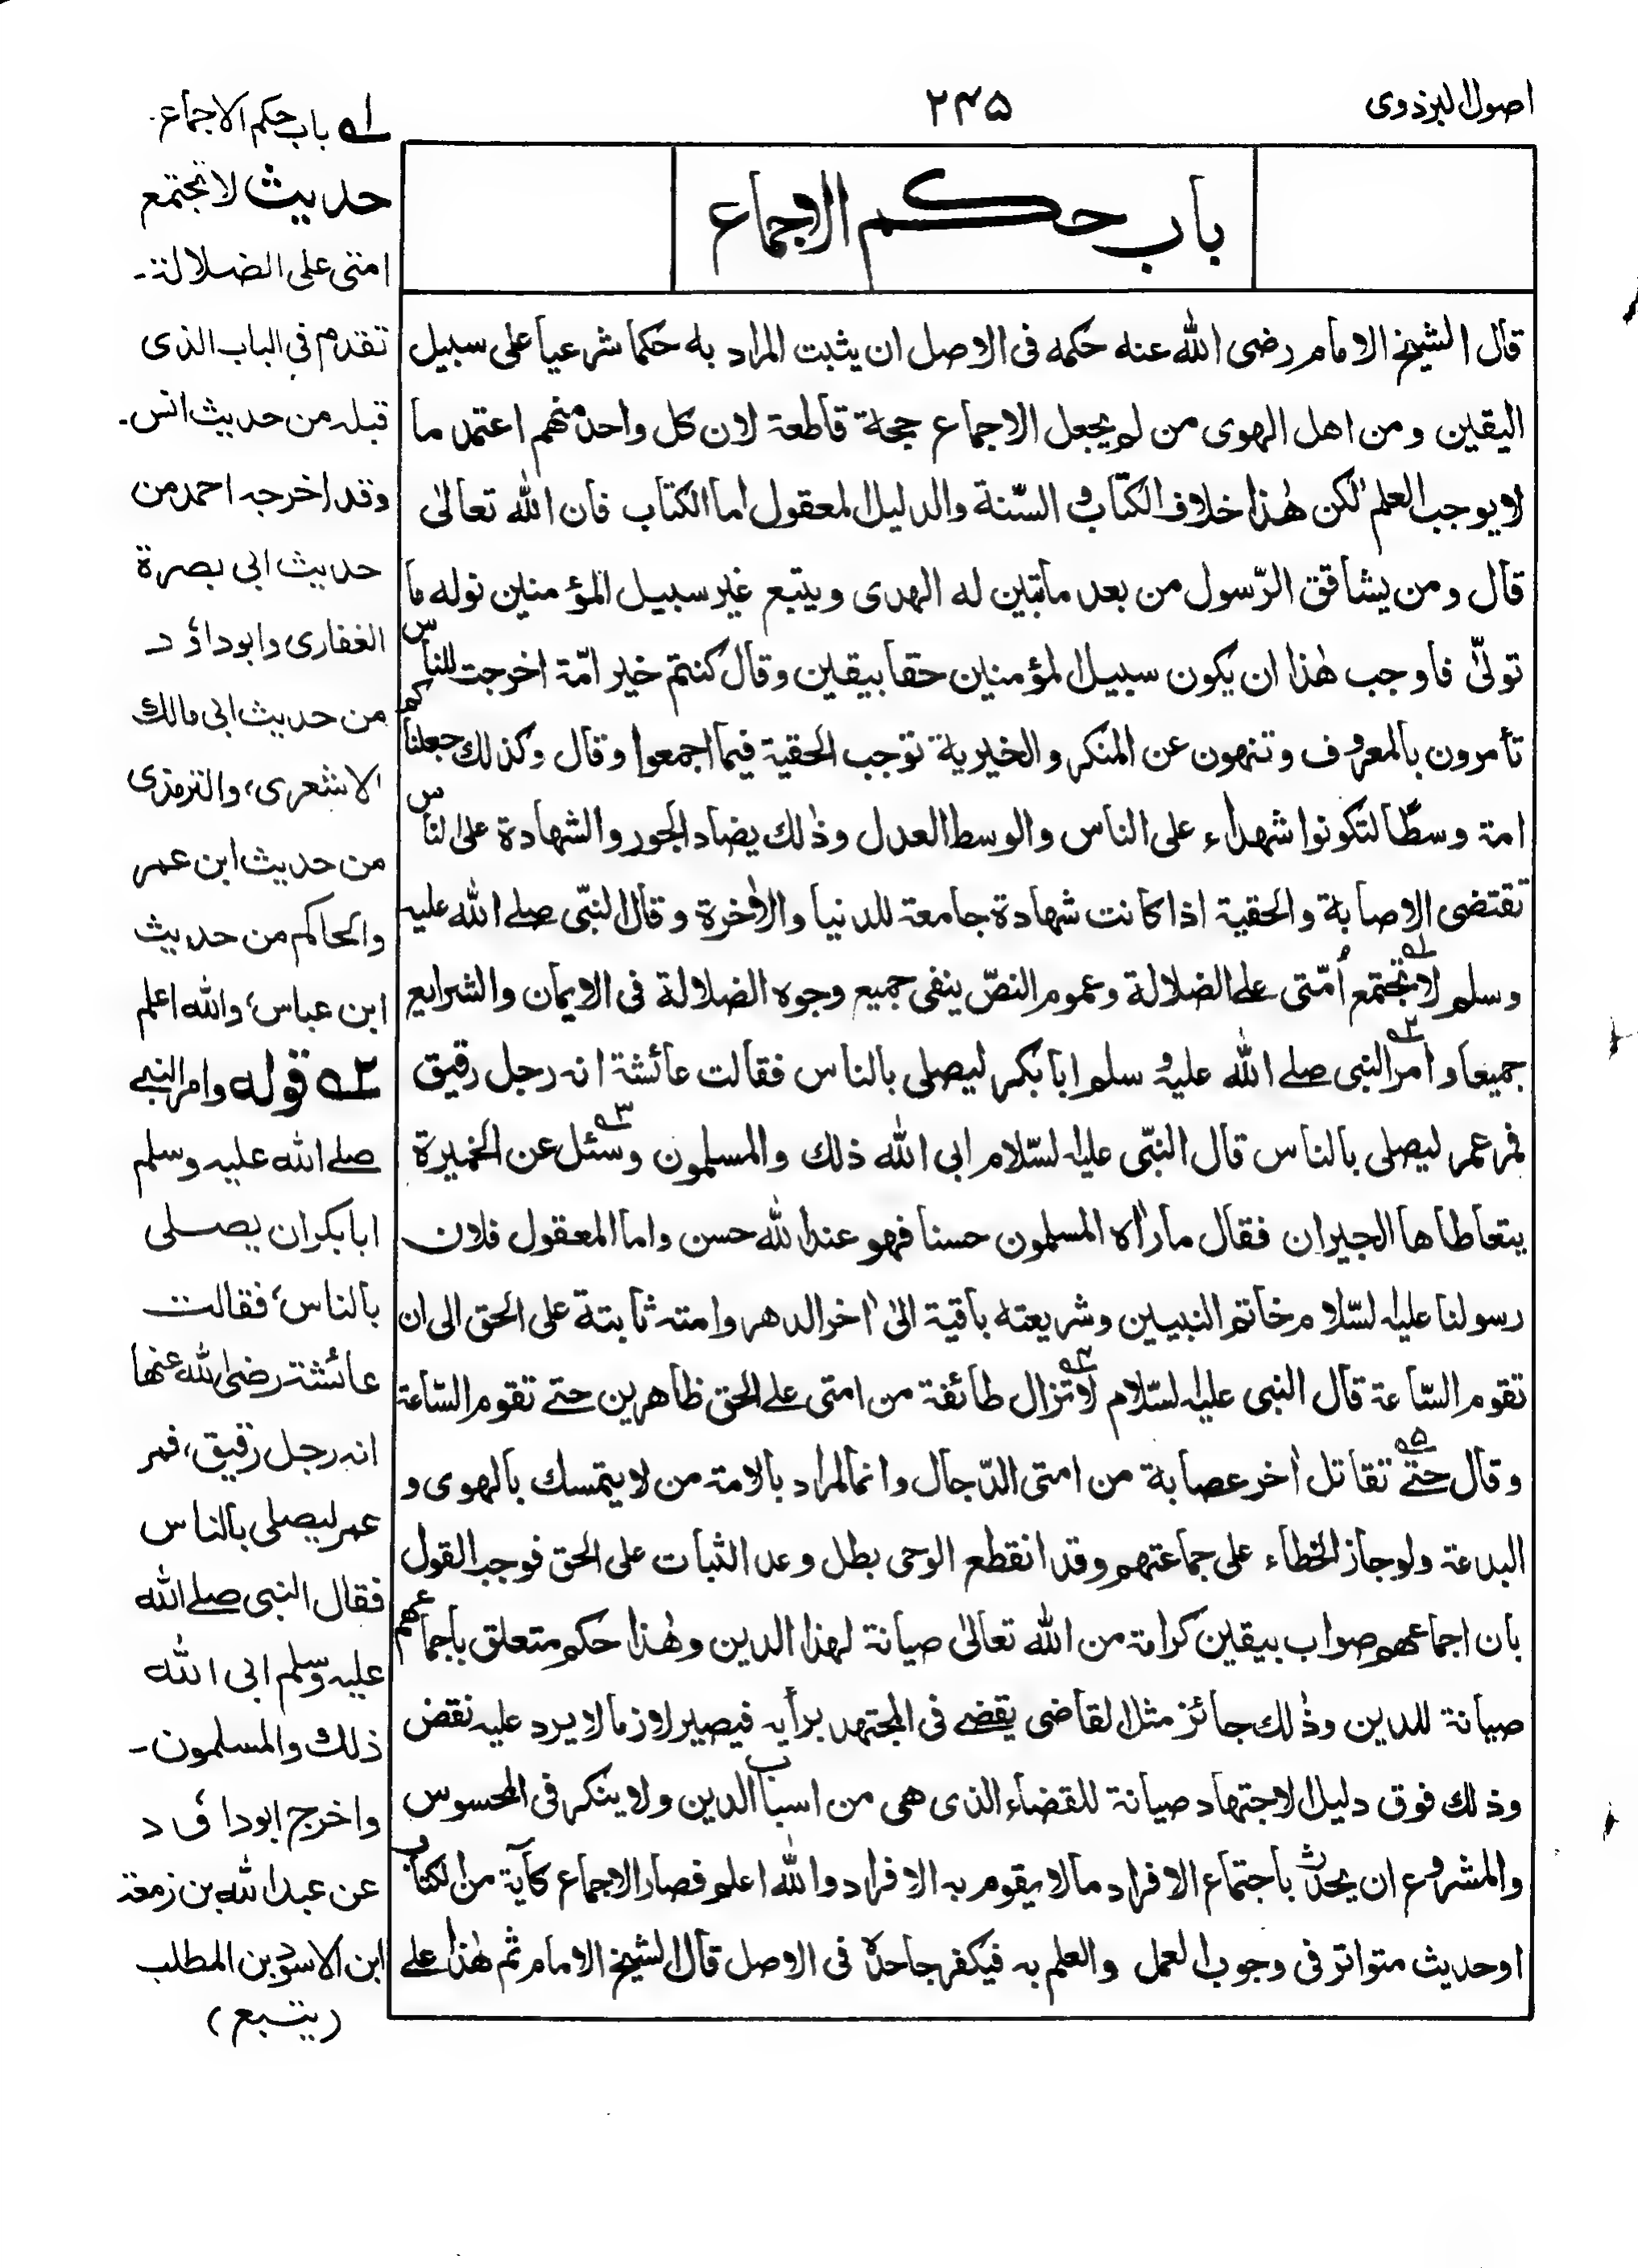 اصول البزدوی
۲۴۵
باب حكم الاجماع
قال الشیخ الامام رضی الله عنه حكمه فی الاصل ان یثبت المراد به حكما شرعیا علی سبیل
الیقین ومن اهل الهوی من لم یجعل الاجماع حجة قاطعة لان كل واحد منهم اعتمد ما
لا یوجب العلم لكن هٰذا خلاف الكتاب و السّنة والدلیل المعقول اما الكتاب فان الله تعالیٰ
قال ومن یشاقق الرّسول من بعد ما تبین له الهدی ویتبع غیر سبیل المؤمنین نوله ما
تولّیٰ فاوجب هٰذا ان یكون سبیل المؤمنین حقا بیقین وقال كنتم خیر امّة اخرجت للناس
تأمرون بالمعروف وتنهون عن المنكر والخیریة توجب الحقیة فیما اجمعوا وقال وكذلك جعلناكم
امة وسطًا لتكونوا شهداء علی الناس والوسط العدل وذٰلك یضاد الجور والشهادة علی الناس
تقتضی الاصابة والحقیة اذا كانت شهادة جامعة للدنیا والاٰخرة وقال النبّی صلے الله علیه
وسلم لا تجتمع اُمّتی علے الضلالة وعموم النصّ ینفی جمیع وجوه الضلالة فی الایمان والشرایع
جمیعا و امر النبی صلے الله علیه و سلم ابا بكر لیصلی بالناس فقالت عائشة انه رجل رقیق
فمر عمر لیصلی بالناس قال النبّی علیه السّلام ابی الله ذلك والمسلمون وسئل عن الخمیرة
یتعاطاها الجیران فقال ما راٰه المسلمون حسنا فهو عند الله حسن واما المعقول فلان
رسولنا علیه السّلام خاتم النبیین وشریعته باقیة الیٰ اٰخر الدهر وامته ثابتة علی الحق الی ان
تقوم السّاعة قال النبی علیه السّلام لا تزال طائفة من امتی علے الحق ظاهرین حتے تقوم السّاعة
وقال حتے تقاتل اٰخر عصابة من امتی الدّجال وانما المراد بالامة من لا یتمسك بالهوی و
البدعة ولو جاز الخطاء علی جماعتهم وقد انقطع الوحی بطل وعد الثبات علی الحق فوجب القول
بان اجماعهم صواب بیقین كرامة من الله تعالیٰ صیانة لهذا الدین وهٰذا حكم متعلق باجماعهم
صیانة للدین وذٰلك جائز مثل القاضی یقضے فی المجتهد برأیه فیصیر لازما لا یرد علیه نقض
وذلك فوق دلیل الاجتهاد صیانة للقضاء الذی هی من اسباب الدین ولا ینكر فی المحسوس
والمشروع ان یحدث باجتماع الافراد ما لا یقوم به الافراد والله اعلم فصار الاجماع كآیة من الكتاب
او حدیث متواتر فی وجوب العمل والعلم به فیكفر جاحده فی الاصل قال الشیخ الامام ثم هٰذا علے
۱ باب حكم الاجماع
حدیث لا تجتمع
امتی علی الضلالة۔
تقدم فی الباب الذی
قبله من حدیث انس۔
وقد اخرجه احمد من
حدیث ابی بصرة
الغفاری وابوداؤد
من حدیث ابی مالك
الاشعری، والترمذی
من حدیث ابن عمر
والحاكم من حدیث
ابن عباس، والله اعلم
۲ قوله وامر النبے
صلے الله علیه وسلم
ابابكر ان یصلی
بالناس، فقالت
عائشة رضی الله عنها
انه رجل رقیق، فمر
عمر لیصلی بالناس
فقال النبی صلے الله
علیه وسلم ابی الله
ذلك والمسلمون۔
واخرج ابوداؤد
عن عبد الله بن زمعة
ابن الاسود بن المطلب
(یتبع)